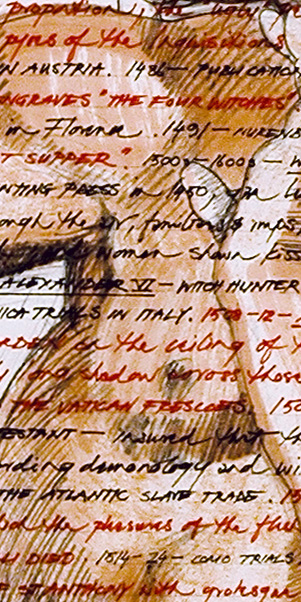 pyres of the Inquisitions
IN AUSTRIA. 1486 – PUBLICATION
ENGRAVES "THE FOUR WITCHES"
in Florence. 1491 – NUREMB
T SUPPER". 1500s–1600s –
NTING PRESS in 1450,
ough the air, familiars & imps,
women shown kiss
ALEXANDER VI – WITCH HUNTER
ICA TRIALS IN ITALY. 1508–12 –
RDEN on the ceiling of
long shadow across those
THE VATICAN FRESCOES. 15
ESTANT – insured that th
uding demonology and wi
THE ATLANTIC SLAVE TRADE. 1
the pleasures of the fles
DIED. 1514–24 – COMO TRIALS
ST ANTHONY with grotesque